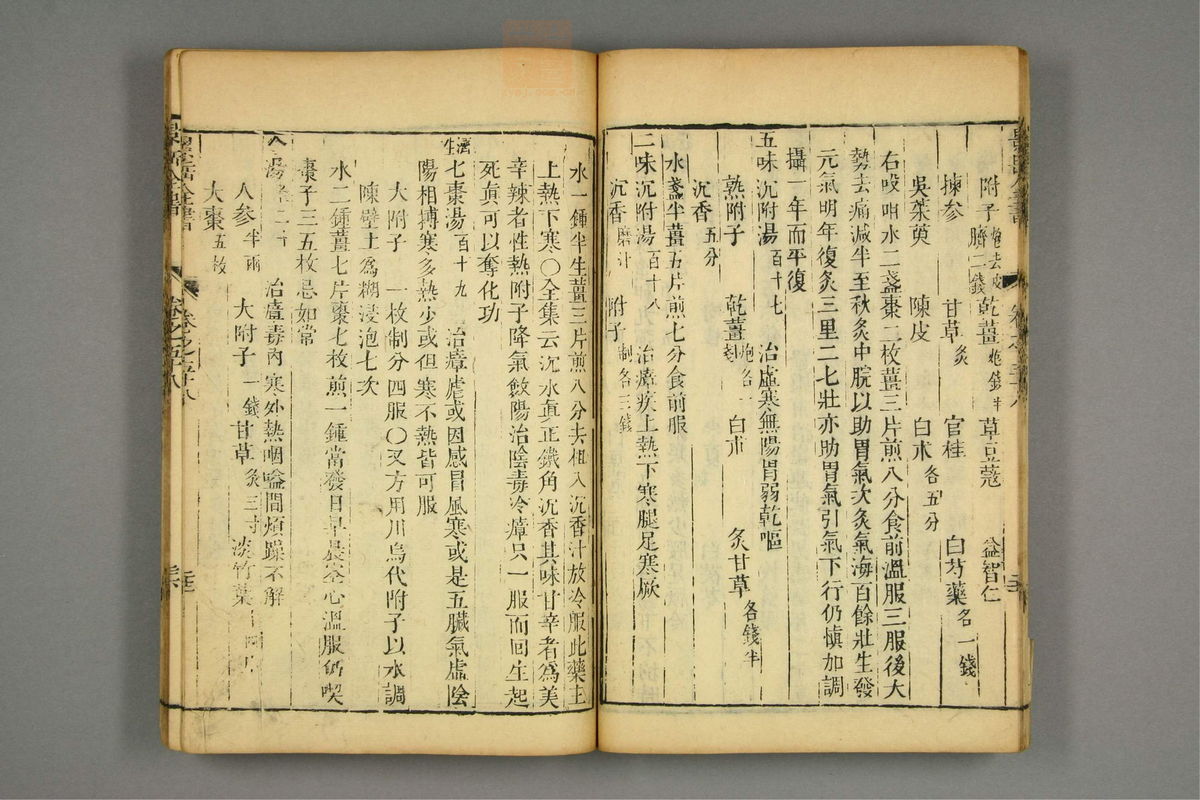 附子 炮去皮臍二錢 乾薑 炮錢半 草豆蔻 益智仁
揀參 甘草 炙 官桂 白芍藥 各一錢
吳茱萸 陳皮 白朮 各五分
右㕮咀水二盞棗二枚薑三片煎八分食前溫服三服後大
勢去痛減半至秋灸中脘以助胃氣次灸氣海百餘壯生發
元氣明年復灸三里二七壯亦助胃氣引氣下行仍慎加調
攝一年而平復
五味沉附湯 百十七 治虛寒無陽胃弱乾嘔
熟附子 乾薑 炮各一 白朮 炙甘草 各錢半
沉香 五分
水盞半薑五片煎七分食前服
二味沉附湯 百十八 治瘴疾上熱下寒腿足寒厥
沉香 磨汁 附子 制各三錢
水一鍾半生薑三片煎八分去柤入沉香汁放冷服此藥主
上熱下寒○全集云沉水真正鐵角沉香其味甘辛者為美
辛辣者性熱附子降氣斂陽治陰毒冷瘴只一服而回生起
死真可以奪化功
濟生七棗湯 百十九 治瘴瘧或因感冒風寒或是五臟氣虛陰
陽相搏寒多熱少或但寒不熱皆可服
大附子 一枚制分四服○又方用川烏代附子以水調
陳壁土為糊浸泡七次
水二鍾薑七片棗七枚煎一鍾當發日早晨空心溫服仍喫
棗子三五枚忌如常
人參湯 治瘴毒內寒外熱咽嗌間煩躁不解
人參 半兩 大附子 一錢 甘草 炙三寸 淡竹葉
大棗 五枚